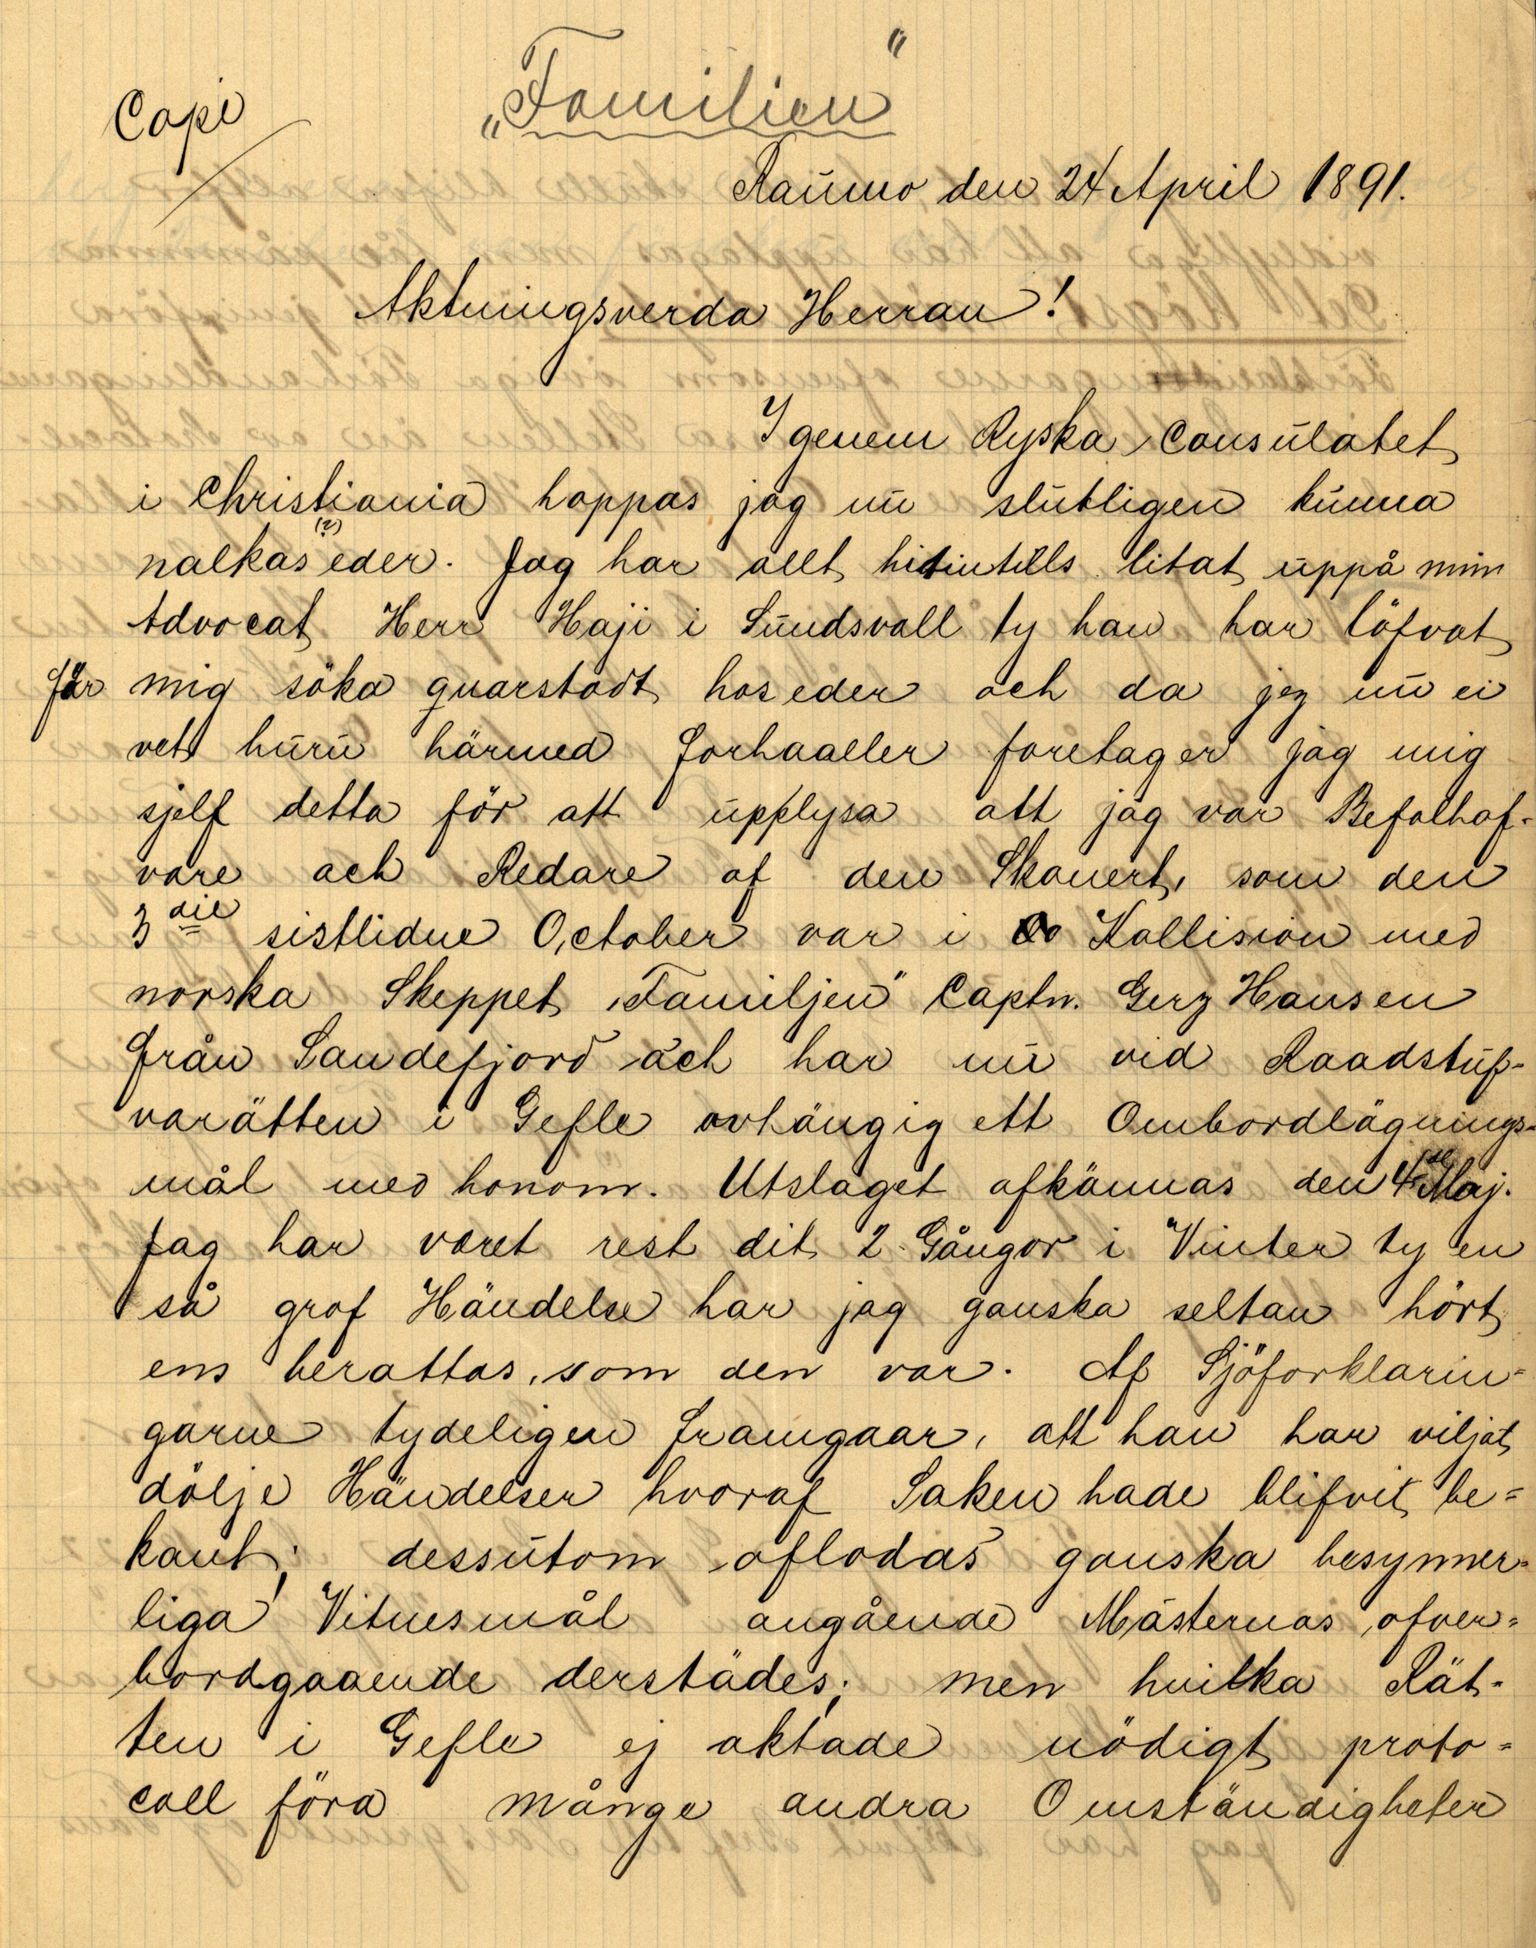 Copi
„Familien"
Raumo den 24 April 1891.
Aktningsverda Herran!
Igenem Ryska Consulatet
i Christiania hoppas jag nu slutligen kunna
nalkas (?) eder. Jag har allt hitintills litat uppå min
Advocat Herr Haji i Sundsvall ty han har löfvat
för mig söka quarstadt hos eder och da jeg nu ei
vet huru härmed forhaaller foretager jag mig
sjelf detta för att upplysa att jag var Befalhaf-
vare och Redare af den Skonert, som den
3die sistlidne October var i Kollision med
norska Skeppet „Familjen" Captn. Gerz Hansen
från Sandefjord och har nu vid Raadstuf-
varätten i Gefle avhängig ett Ombordlägnings-
mål med honom. Utslaget afkännas den 4de Maj.
Jag har varet rest dit 2 Gångor i Vinter ty en
så grof Händelse har jag ganska seltan hört
ens berattas, som den var. Af Sjöforklarin-
garne tydeligen framgaar, att han har viljat
dölje Händelser hvoraf Saken hade blifvit be-
kant; dessutom aflodas ganska besynner-
liga Vitnesmål angående Mästernas ofver-
bordgaaende derstädes; men hvilka Rät-
ten i Gefle ej aktade nödigt proto-
coll föra mange andra Omständigheter